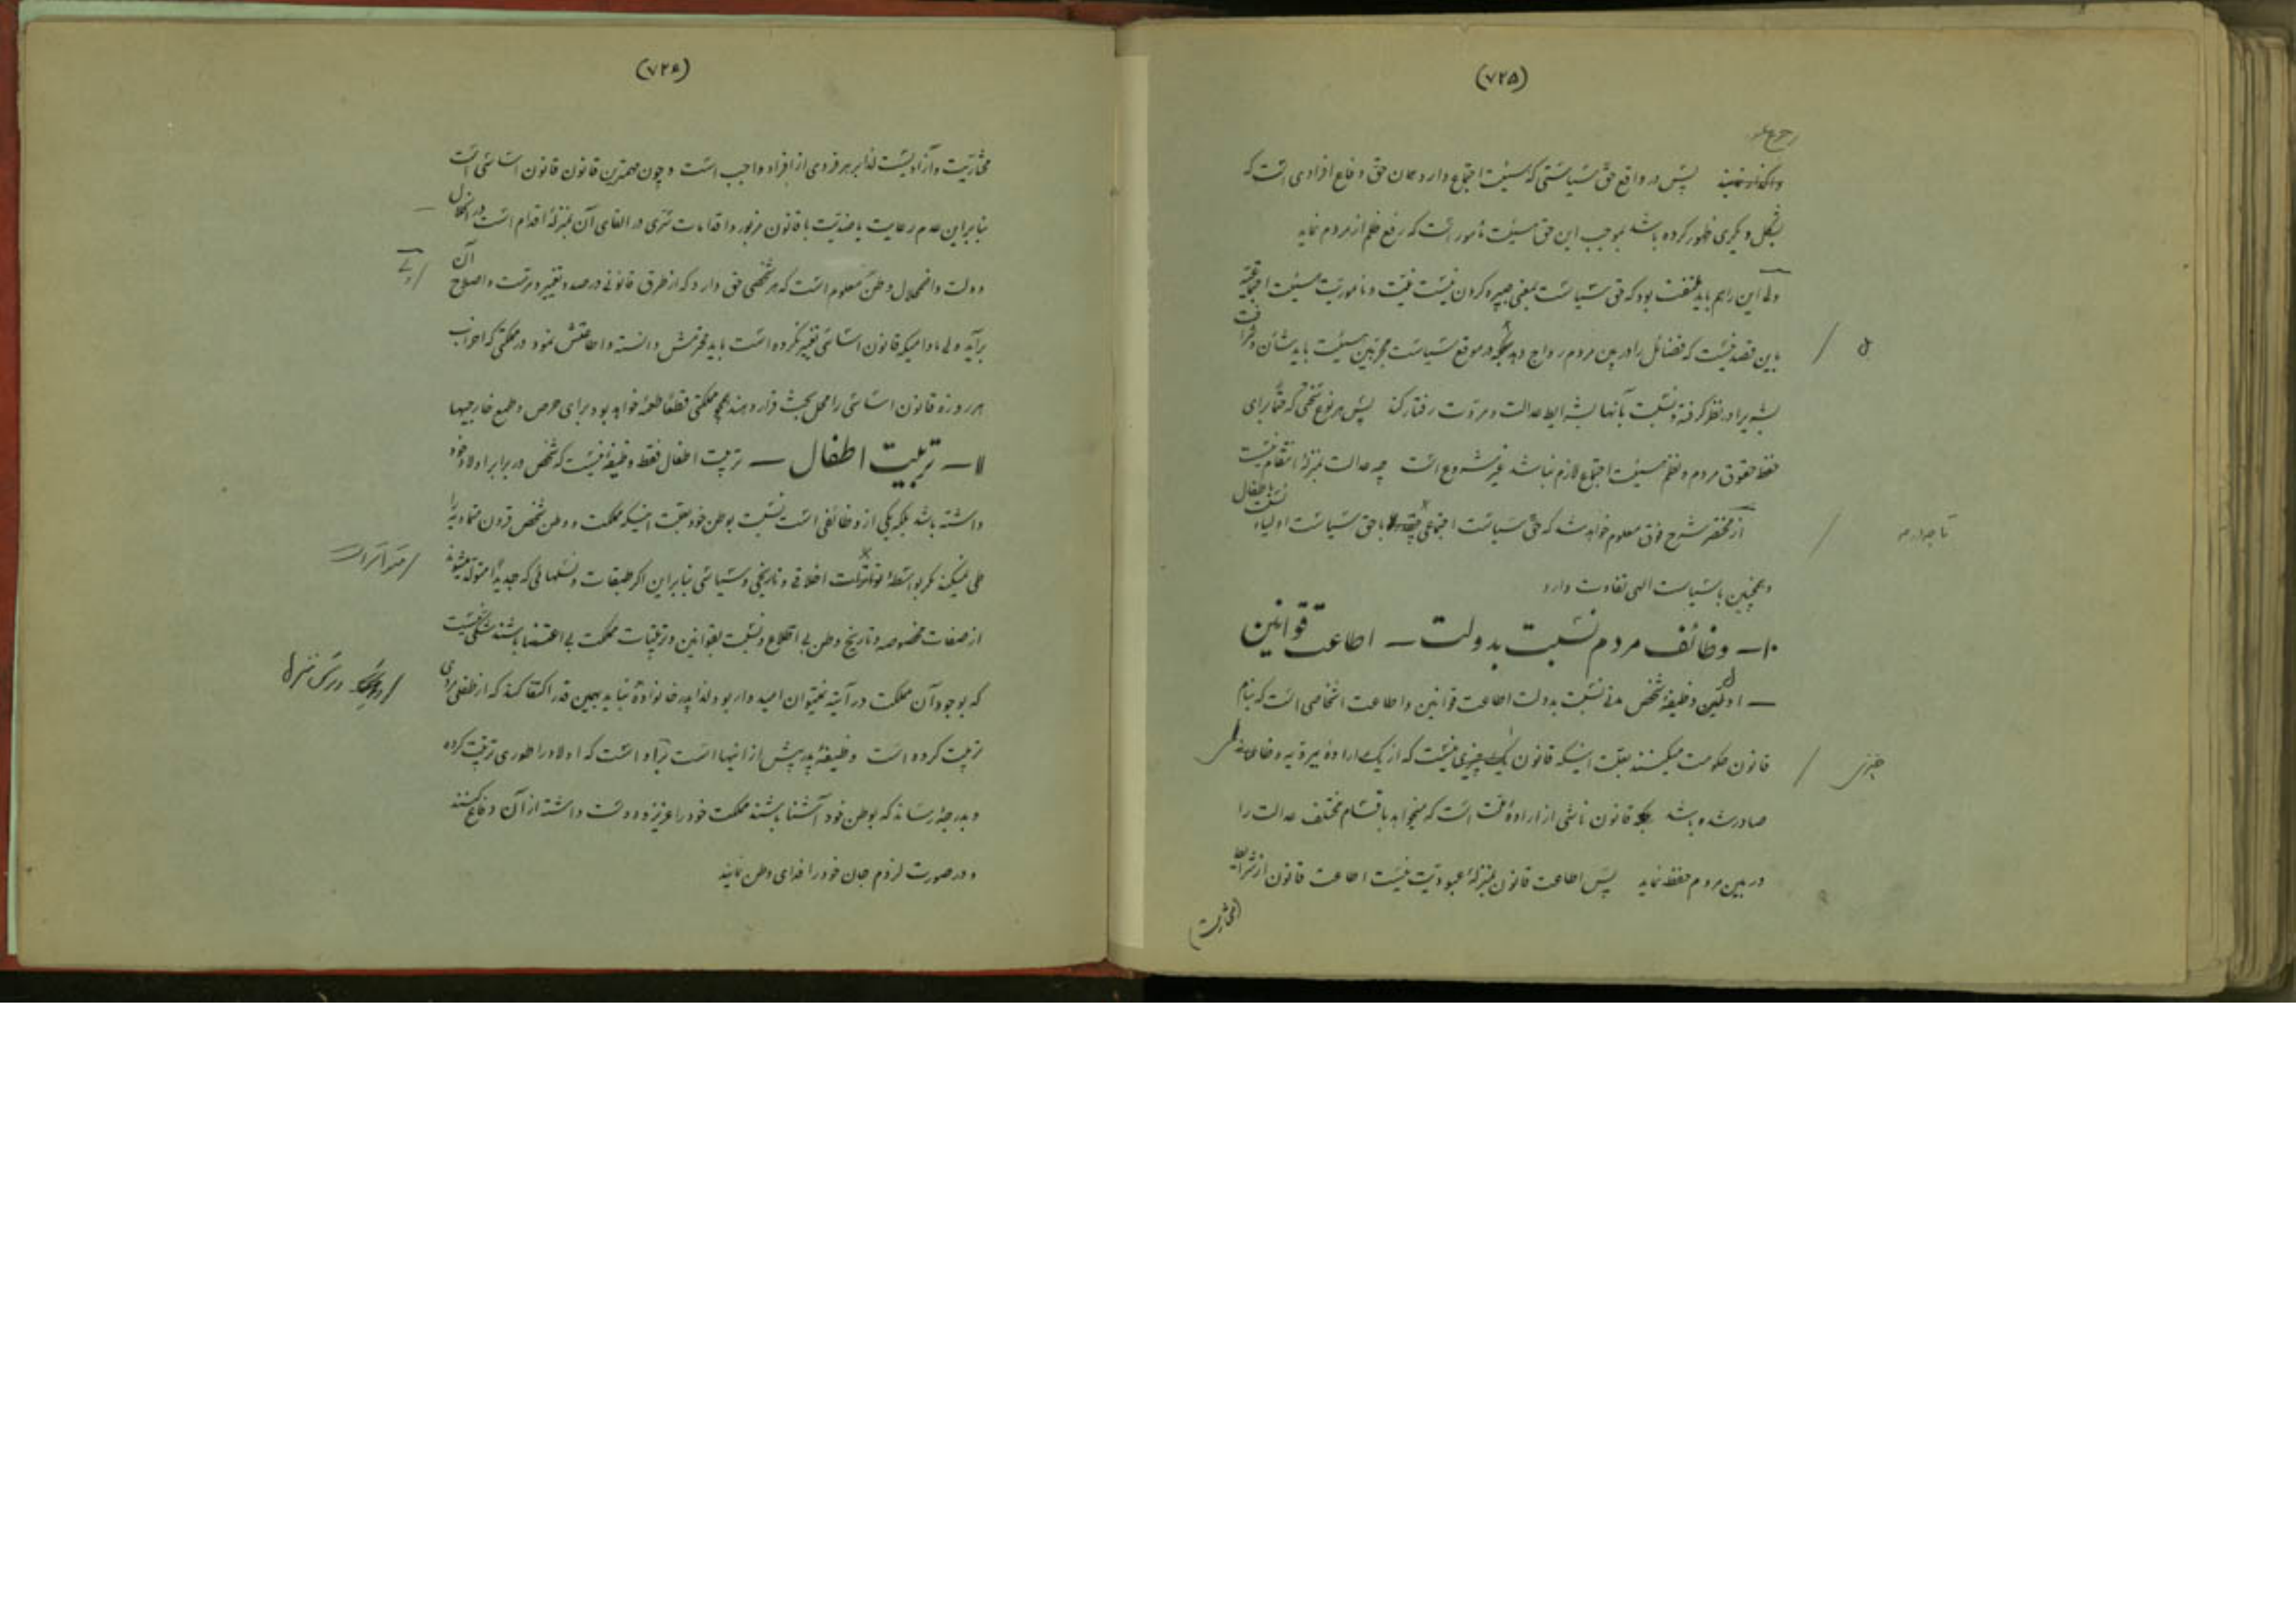 (۷۲۵)
رجوع
واگذار نمایند پس در واقع حق سیاستی که هیئت اجتماع دارد همان حق دفاع افرادی است که
بشکل دیگری ظهور کرده باشد بموجب این حق هیئت مأمور است که رفع ظلم از مردم نماید
ولی این را هم باید ملتفت بود که حق سیاست بمعنی جیره کردن نیست نیست و مأموریت هیئت اجتماعیه
باین قصد نیست که فضائل را در بین مردم رواج دهد بلکه در موقع سیاست مجرمین هیئت باید شأن و شرافت
بشریرا در نظر گرفته و نسبت بآنها بشرایط عدالت و مروت رفتار کند پس هر نوع سختی که حتماً برای
حفظ حقوق مردم و نظم هیئت اجتماع لازم نباشد غیر مشروع است چه عدالت بمنزلهٔ انتقام نیست
از مختصر شرح فوق معلوم خواهد شد که حق سیاست اجتماعی با حق سیاست اولیاء نسبت باطفال
و همچنین با سیاست الهی تفاوت دارد
۱۰ـ وظائف مردم نسبت بدولت ـ اطاعت قوانین
ـ اولین وظیفهٔ شخص مدنی نسبت بدولت اطاعت قوانین و اطاعت اشخاصی است که بنام
قانون حکومت میکنند بعلت اینکه قانون یک چیزی نیست که از یک ارادهٔ بیرویه و خاص
صادر شده باشد بلکه قانون ناشی از ارادهٔ ملت است که میخواهد باقسام مختلف عدالت را
در بین مردم حفظ نماید پس اطاعت قانون بمنزلهٔ عبودیت نیست اطاعت قانون از شرایط
(مختاریت)
(۷۲۶)
مختاریت و آزادیست لذا بر هر فردی از افراد واجب است و چون مهمترین قانون قانون اساسی است
بنابراین عدم رعایت یا ضدیت با قانون مزبور و اقدامات سرّی در الغای آن بمنزلهٔ اقدام است در انحلال
دولت و اضمحلال وطن معلوم است که هر شخصی حق دارد که از طرق قانونی درصدد تغییر و مرمت و اصلاح آن
برآید ولی مادامیکه قانون اساسی تغییر نکرده است باید محترمش دانسته و اطاعتش نمود در مملکتی که احزاب
هر روزه قانون اساسی را محل بحث قرار دهند همچو مملکتی قطعاً طعمه خواهد بود برای حرص و طمع خارجیها
۱۱ـ تربیت اطفال ـ تربیت اطفال فقط وظیفهٔ نیست که شخص در برابر اولاد خود
داشته باشد بلکه یکی از وظائفی است نسبت بوطن خود بعلت اینکه مملکت و وطن شخص قرون متمادیه را
طی نمیکند مگر بواسطهٔ اخلاقی و تاریخی و سیاسی بنابراین اگر طبقات و نسلهائی که جدیداً متولد میشوند
از صفات مخصوصه و تاریخ وطن بی اطلاع و نسبت بقوانین و ترتیبات مملکت بی اعتنا باشند شکی نیست
که بوجود آن مملکت در آتیه نمیتوان امیدوار بود لذا پدر خانوادهٔ نباید بهمین قدر اکتفا کند که از طفلی مردی
تربیت کرده است وظیفهٔ پدر بیش از اینها است زیاد است که اولاد را طوری تربیت کرده
و بدرجهٔ رساند که بوطن خود آشنا باشند مملکت خود را عزیز و دوست داشته از آن دفاع کنند
و در صورت لزوم جان خود را فدای وطن نمایند